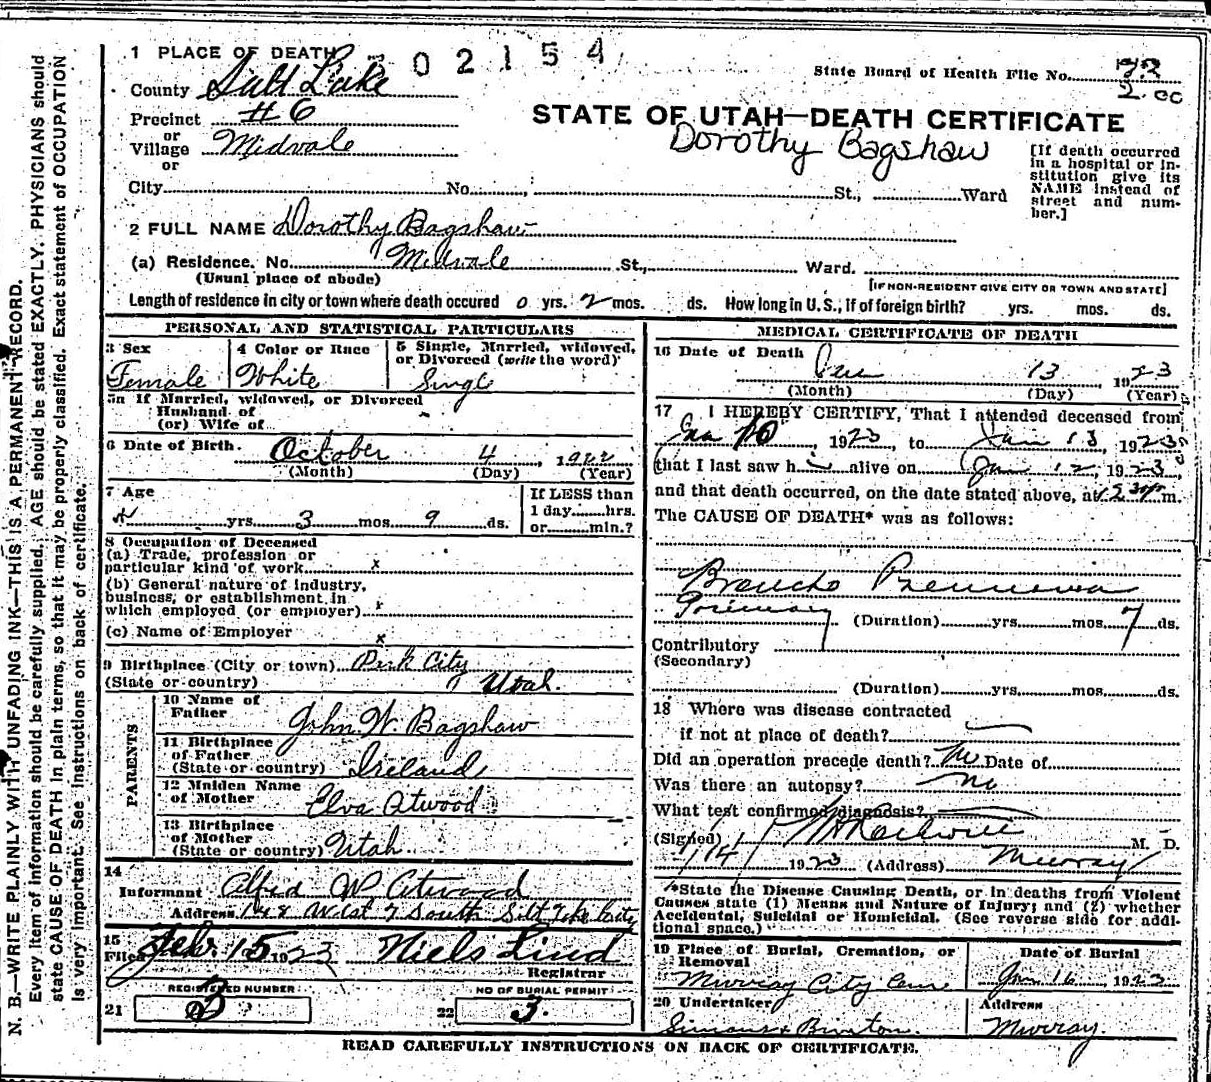 1 PLACE OF DEATH
302154
State Board of Health File No. 32
2.00
County Salt Lake
Precinct #6
or
Village Midvale
or
STATE OF UTAH—DEATH CERTIFICATE
Dorothy Bagshaw
[If death occurred in a hospital or institution give its NAME instead of street and number.]
City No. , St., Ward
2 FULL NAME Dorothy Bagshaw
(a) Residence. No. Midvale St., Ward.
(Usual place of abode) [IF NON-RESIDENT GIVE CITY OR TOWN AND STATE]
Length of residence in city or town where death occured 0 yrs. 2 mos. ds. How long in U. S., if of foreign birth? yrs. mos. ds.
PERSONAL AND STATISTICAL PARTICULARS
3 Sex
Female
4 Color or Race
White
5 Single, Married, widowed, or Divorced (write the word)
Single
5a If Married, widowed, or Divorced
Husband of
(or) Wife of
6 Date of Birth October 4, 1922
(Month) (Day) (Year)
7 Age
yrs. 3 mos. 9 ds.
If LESS than
1 day hrs.
or min.?
8 Occupation of Deceased
(a) Trade, profession or
particular kind of work x
(b) General nature of industry,
business, or establishment in
which employed (or employer)
(c) Name of Employer x
9 Birthplace (City or town) Park City
(State or country) Utah.
PARENTS
10 Name of
Father John W. Bagshaw
11 Birthplace
of Father
(State or country) Ireland
12 Maiden Name
of Mother Elva Atwood
13 Birthplace
of Mother
(State or country) Utah
14
Informant Alfred W Atwood
Address 148 West 7 South Salt Lake City
15
Filed Febr. 15 1923 Niels Lind
Registrar
REGISTERED NUMBER
21
NO OF BURIAL PERMIT
22 3.
MEDICAL CERTIFICATE OF DEATH
16 Date of Death Jan 13 1923
(Month) (Day) (Year)
17 I HEREBY CERTIFY, That I attended deceased from
Jan 10, 1923, to Jan 13, 1923
that I last saw h alive on Jan 12, 1923
and that death occurred, on the date stated above, at 2 30 p m.
The CAUSE OF DEATH* was as follows:
Broncho Pneumonia
Primary
(Duration) yrs. mos. 7 ds.
Contributory
(Secondary)
(Duration) yrs. mos. ds.
18 Where was disease contracted
if not at place of death?
Did an operation precede death? No Date of
Was there an autopsy? no
What test confirmed diagnosis?
(Signed) M. D.
1/14 1923 (Address) Murray
*State the Disease Causing Death, or in deaths from Violent
Causes state (1) Means and Nature of Injury; and (2) whether
Accidental, Suicidal or Homicidal. (See reverse side for additional space.)
19 Place of Burial, Cremation, or
Removal
Murray City Cem
Date of Burial
Jan 16, 1923
20 Undertaker
Address
Murray.
READ CAREFULLY INSTRUCTIONS ON BACK OF CERTIFICATE.
N. B.—WRITE PLAINLY WITH UNFADING INK—THIS IS A PERMANENT RECORD.
Every item of information should be carefully supplied. AGE should be stated EXACTLY. PHYSICIANS should
state CAUSE OF DEATH in plain terms, so that it may be properly classified. Exact statement of OCCUPATION
is very important. See instructions on back of certificate.